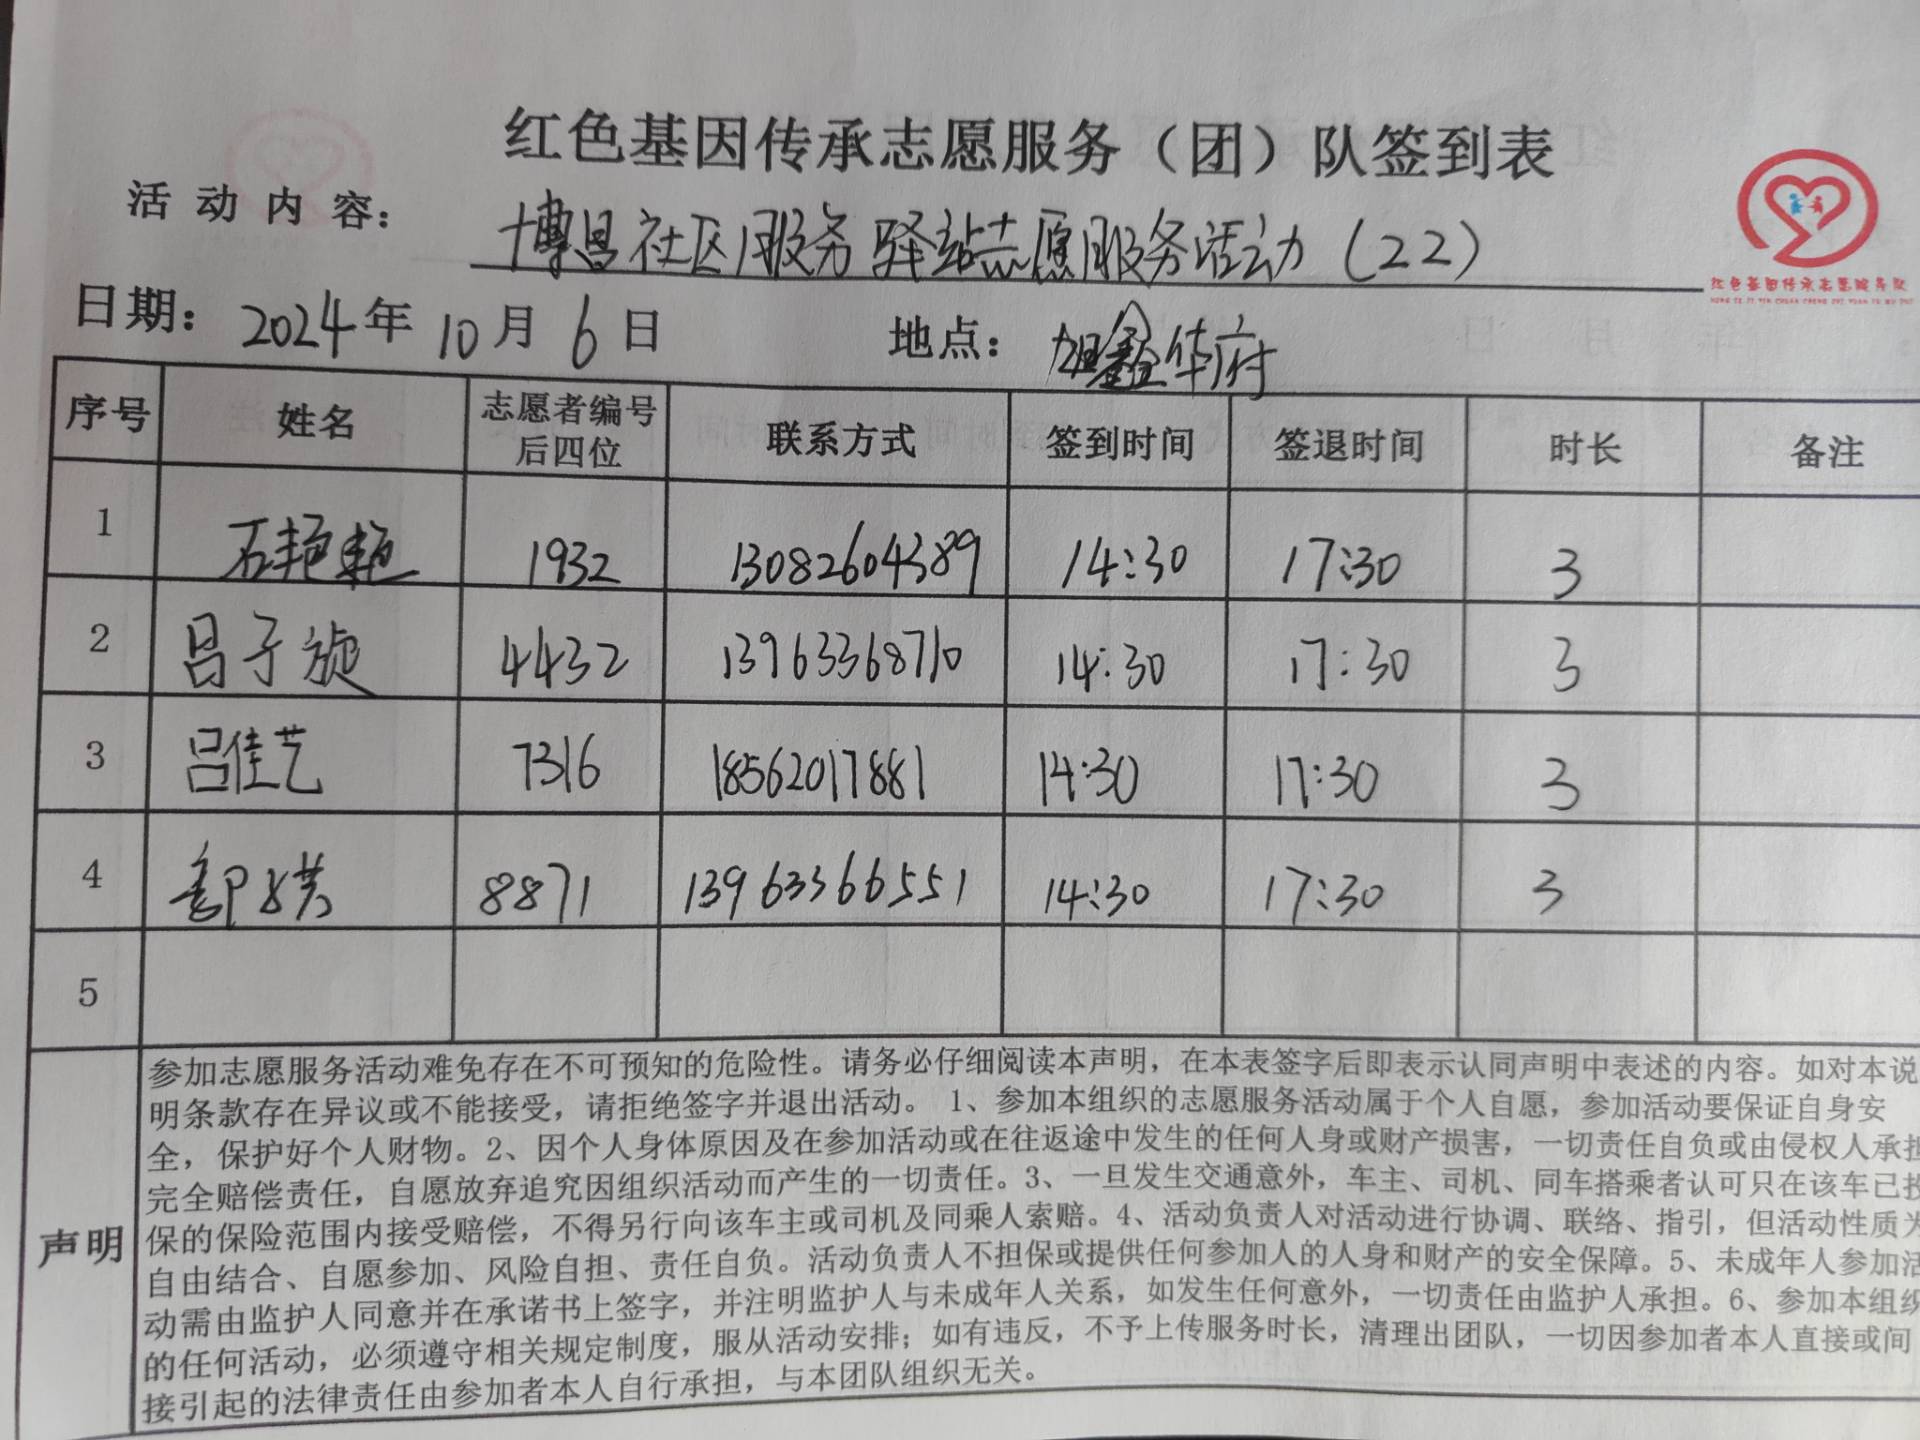 红色基因传承志愿服务（团）队签到表
活动内容： 博昌社区服务驿站志愿服务活动（22）
红色基因传承志愿服务队
日期：2024年10月6日 地点：旭鑫华府
序号 姓名 志愿者编号后四位 联系方式 签到时间 签退时间 时长 备注
1 石艳艳 1932 13082604389 14:30 17:30 3
2 吕子旋 4432 13963368710 14:30 17:30 3
3 吕佳艺 7316 18562017881 14:30 17:30 3
4 8871 13963366551 14:30 17:30 3
5
声明
参加志愿服务活动难免存在不可预知的危险性。请务必仔细阅读本声明，在本表签字后即表示认同声明中表述的内容。如对本说
明条款存在异议或不能接受，请拒绝签字并退出活动。 1、参加本组织的志愿服务活动属于个人自愿，参加活动要保证自身安
全，保护好个人财物。2、因个人身体原因及在参加活动或在往返途中发生的任何人身或财产损害，一切责任自负或由侵权人承担
完全赔偿责任，自愿放弃追究因组织活动而产生的一切责任。3、一旦发生交通意外，车主、司机、同车搭乘者认可只在该车已投
保的保险范围内接受赔偿，不得另行向该车主或司机及同乘人索赔。4、活动负责人对活动进行协调、联络、指引，但活动性质为
自由结合、自愿参加、风险自担、责任自负。活动负责人不担保或提供任何参加人的人身和财产的安全保障。5、未成年人参加活
动需由监护人同意并在承诺书上签字，并注明监护人与未成年人关系，如发生任何意外，一切责任由监护人承担。6、参加本组织
的任何活动，必须遵守相关规定制度，服从活动安排；如有违反，不予上传服务时长，清理出团队，一切因参加者本人直接或间
接引起的法律责任由参加者本人自行承担，与本团队组织无关。